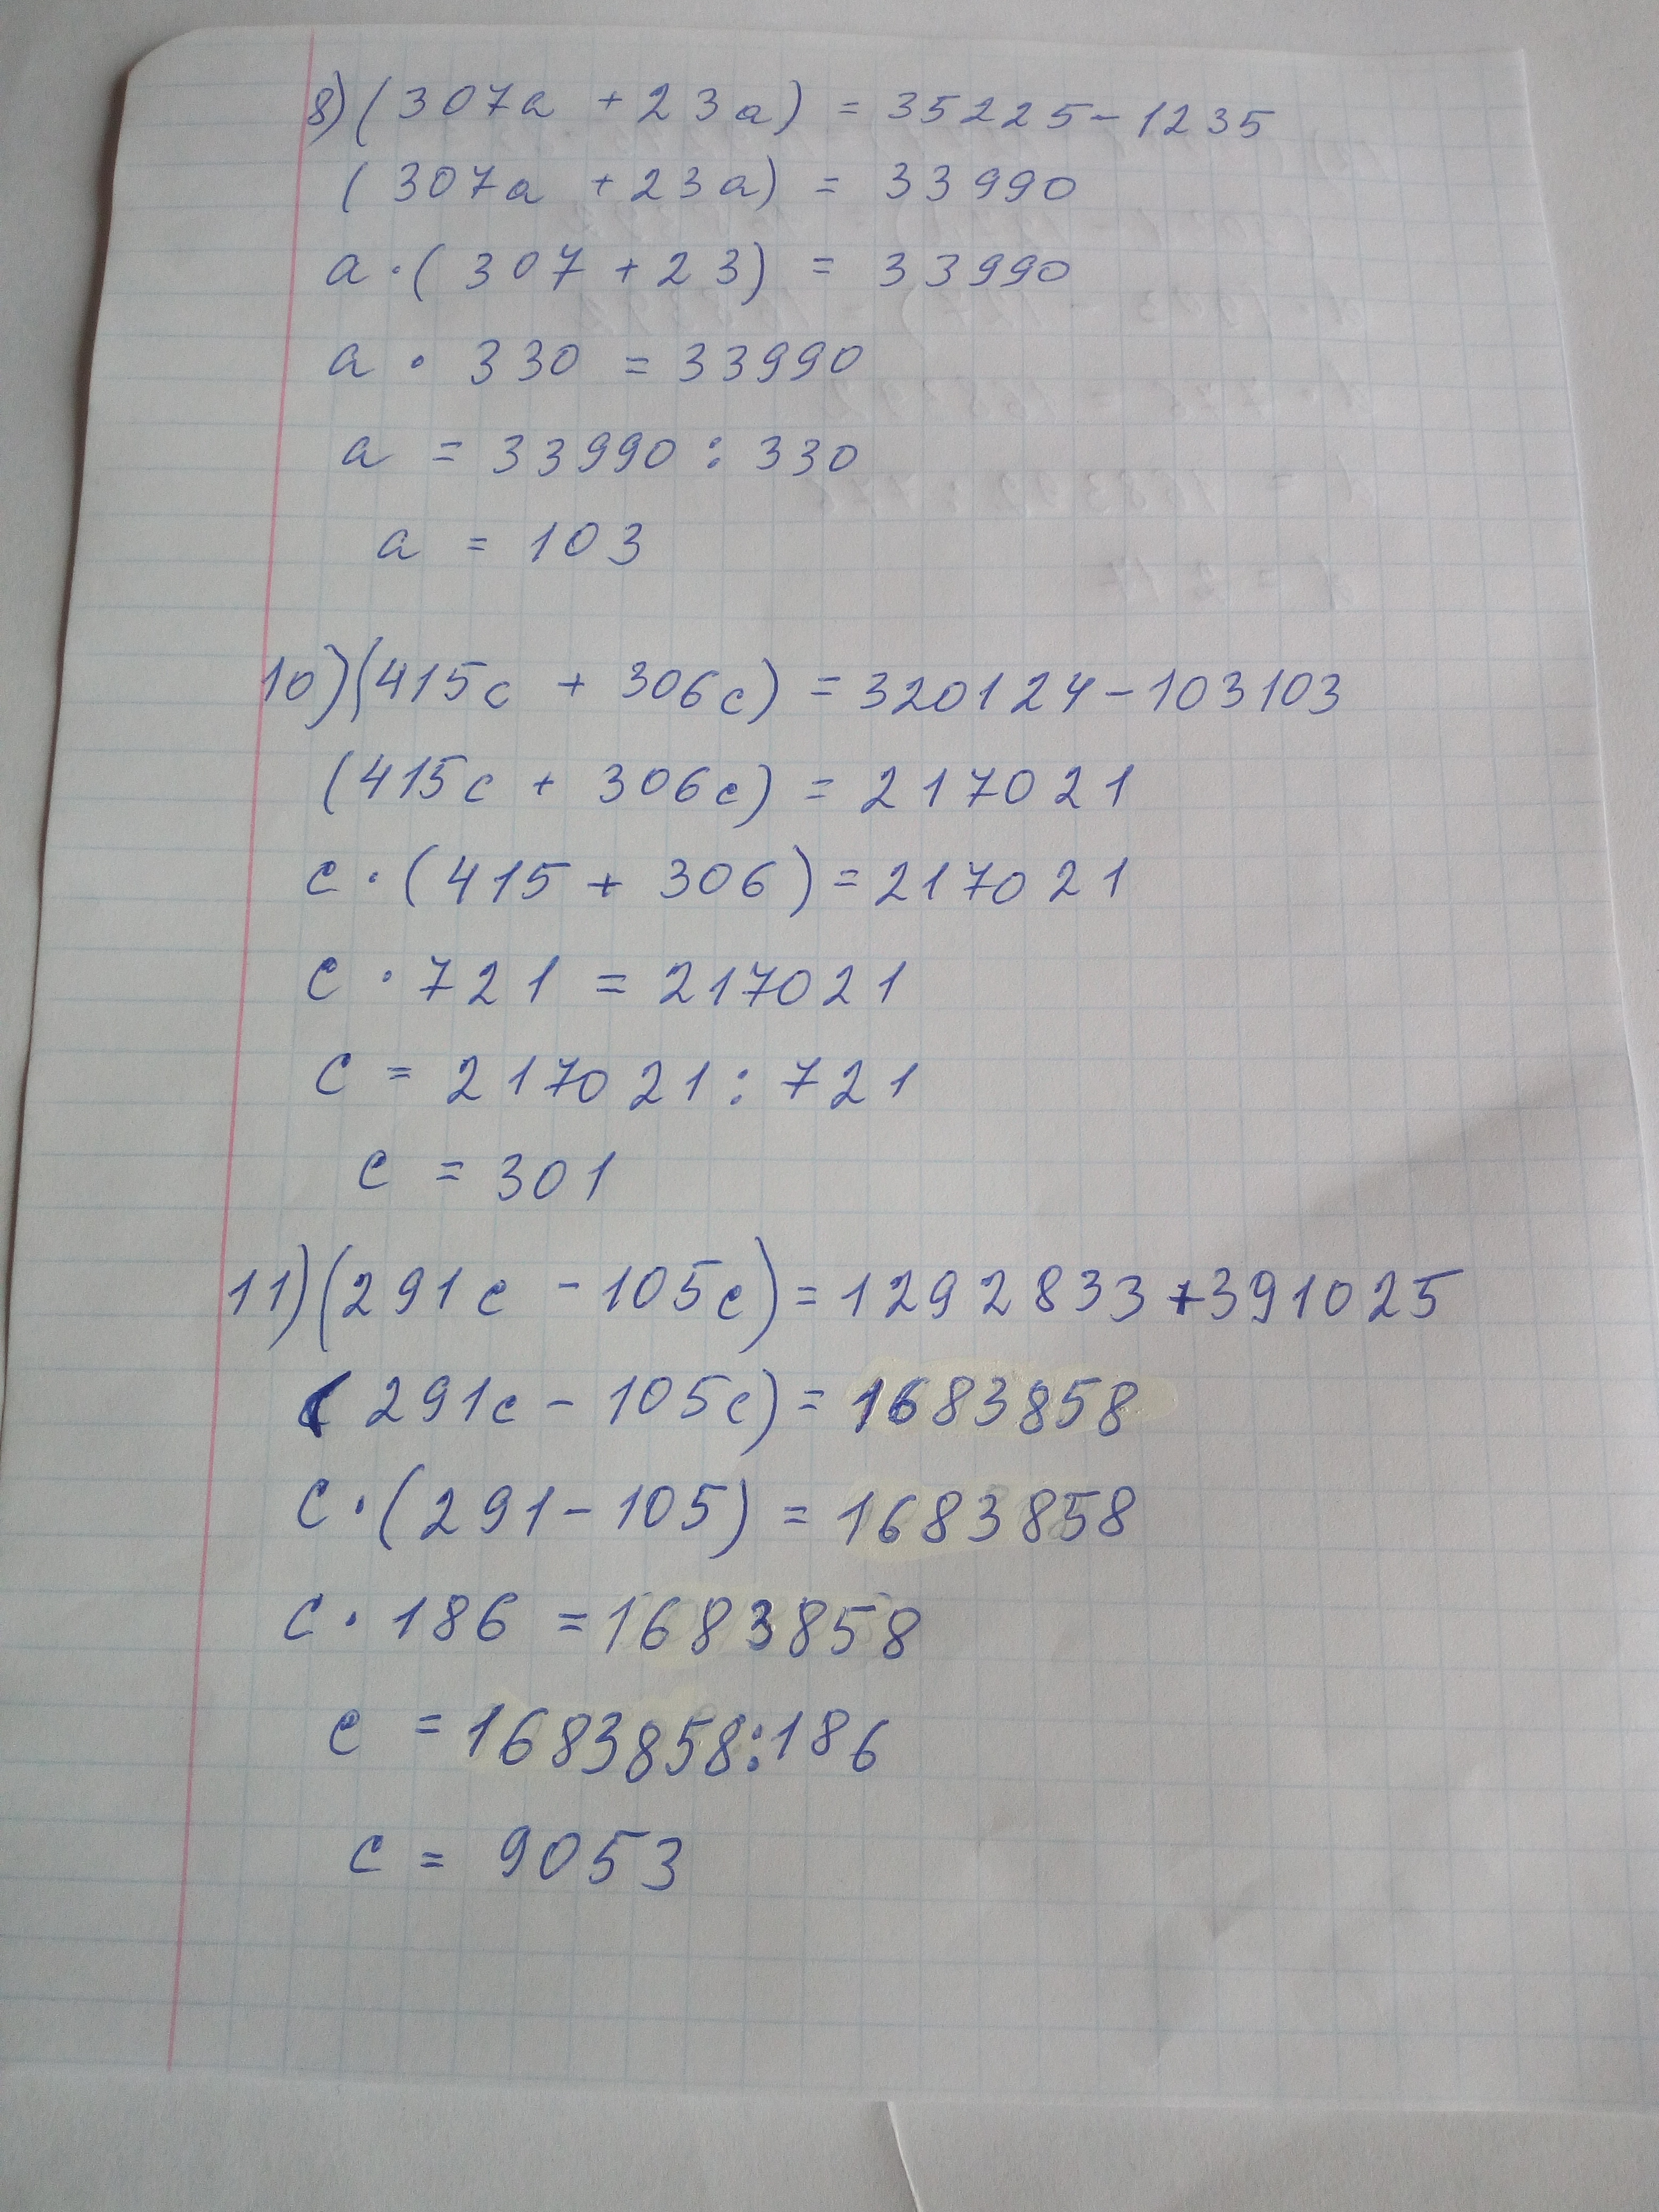 8) (307a + 23a) = 35225 - 1235
(307a + 23a) = 33990
a · (307 + 23) = 33990
a · 330 = 33990
a = 33990 : 330
a = 103
10) (415c + 306c) = 320124 - 103103
(415c + 306c) = 217021
c · (415 + 306) = 217021
c · 721 = 217021
c = 217021 : 721
c = 301
11) (291c - 105c) = 1292833 + 391025
(291c - 105c) = 1683858
c · (291 - 105) = 1683858
c · 186 = 1683858
c = 1683858 : 186
c = 9053